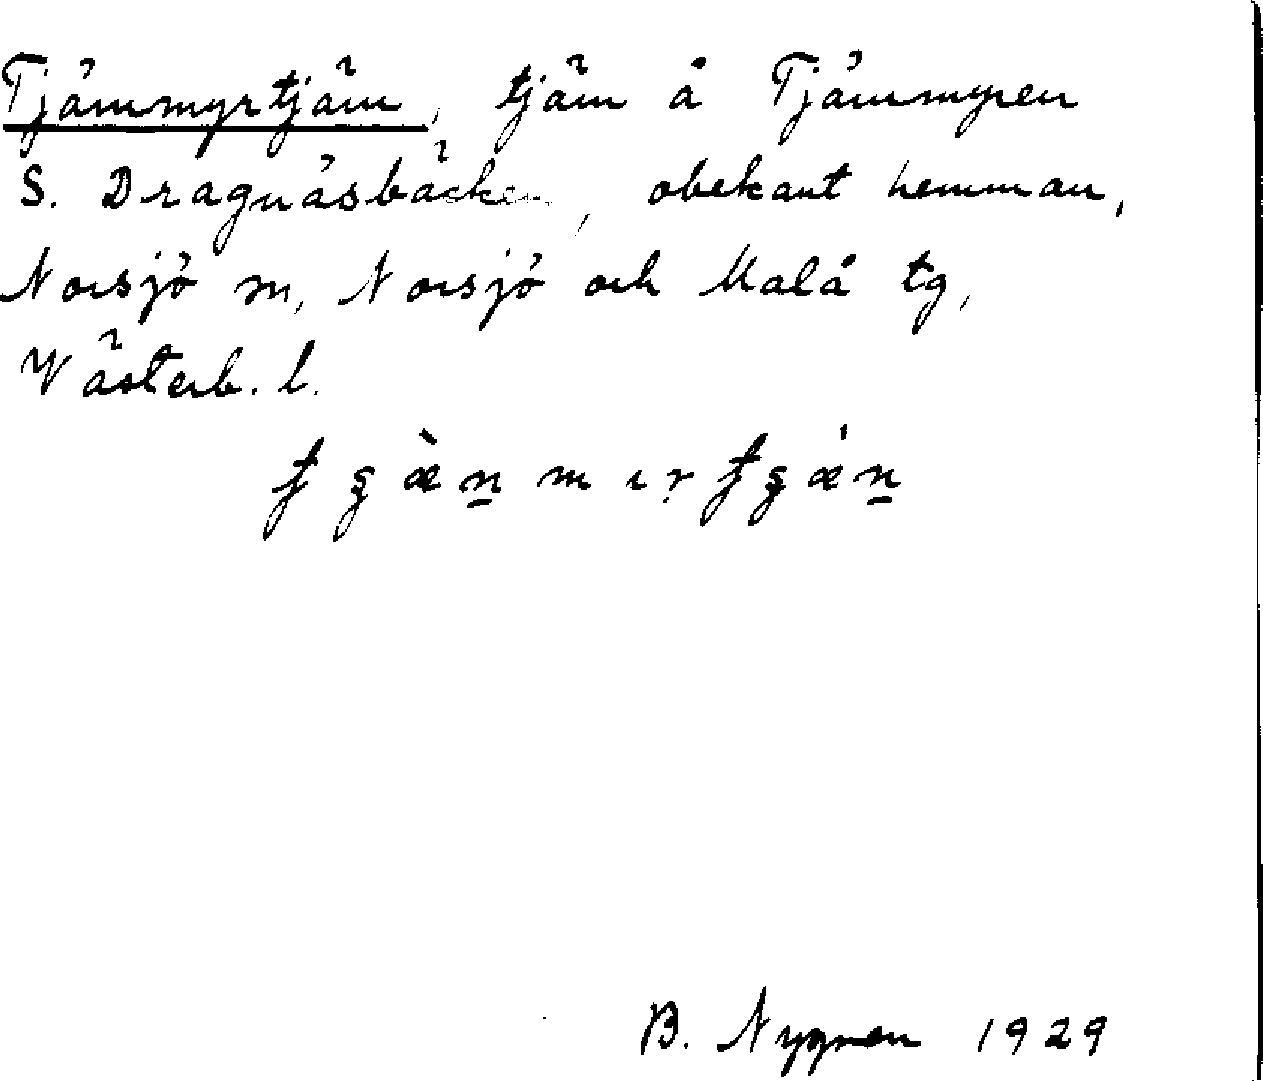 Tjämmyrtjäm, tjäm å Tjämmyren
S. Dragnäsbäcken, obekant hemman,
Norsjö sn, Norsjö och Malå tg,
Västerb. l.
B. Nygren 1929